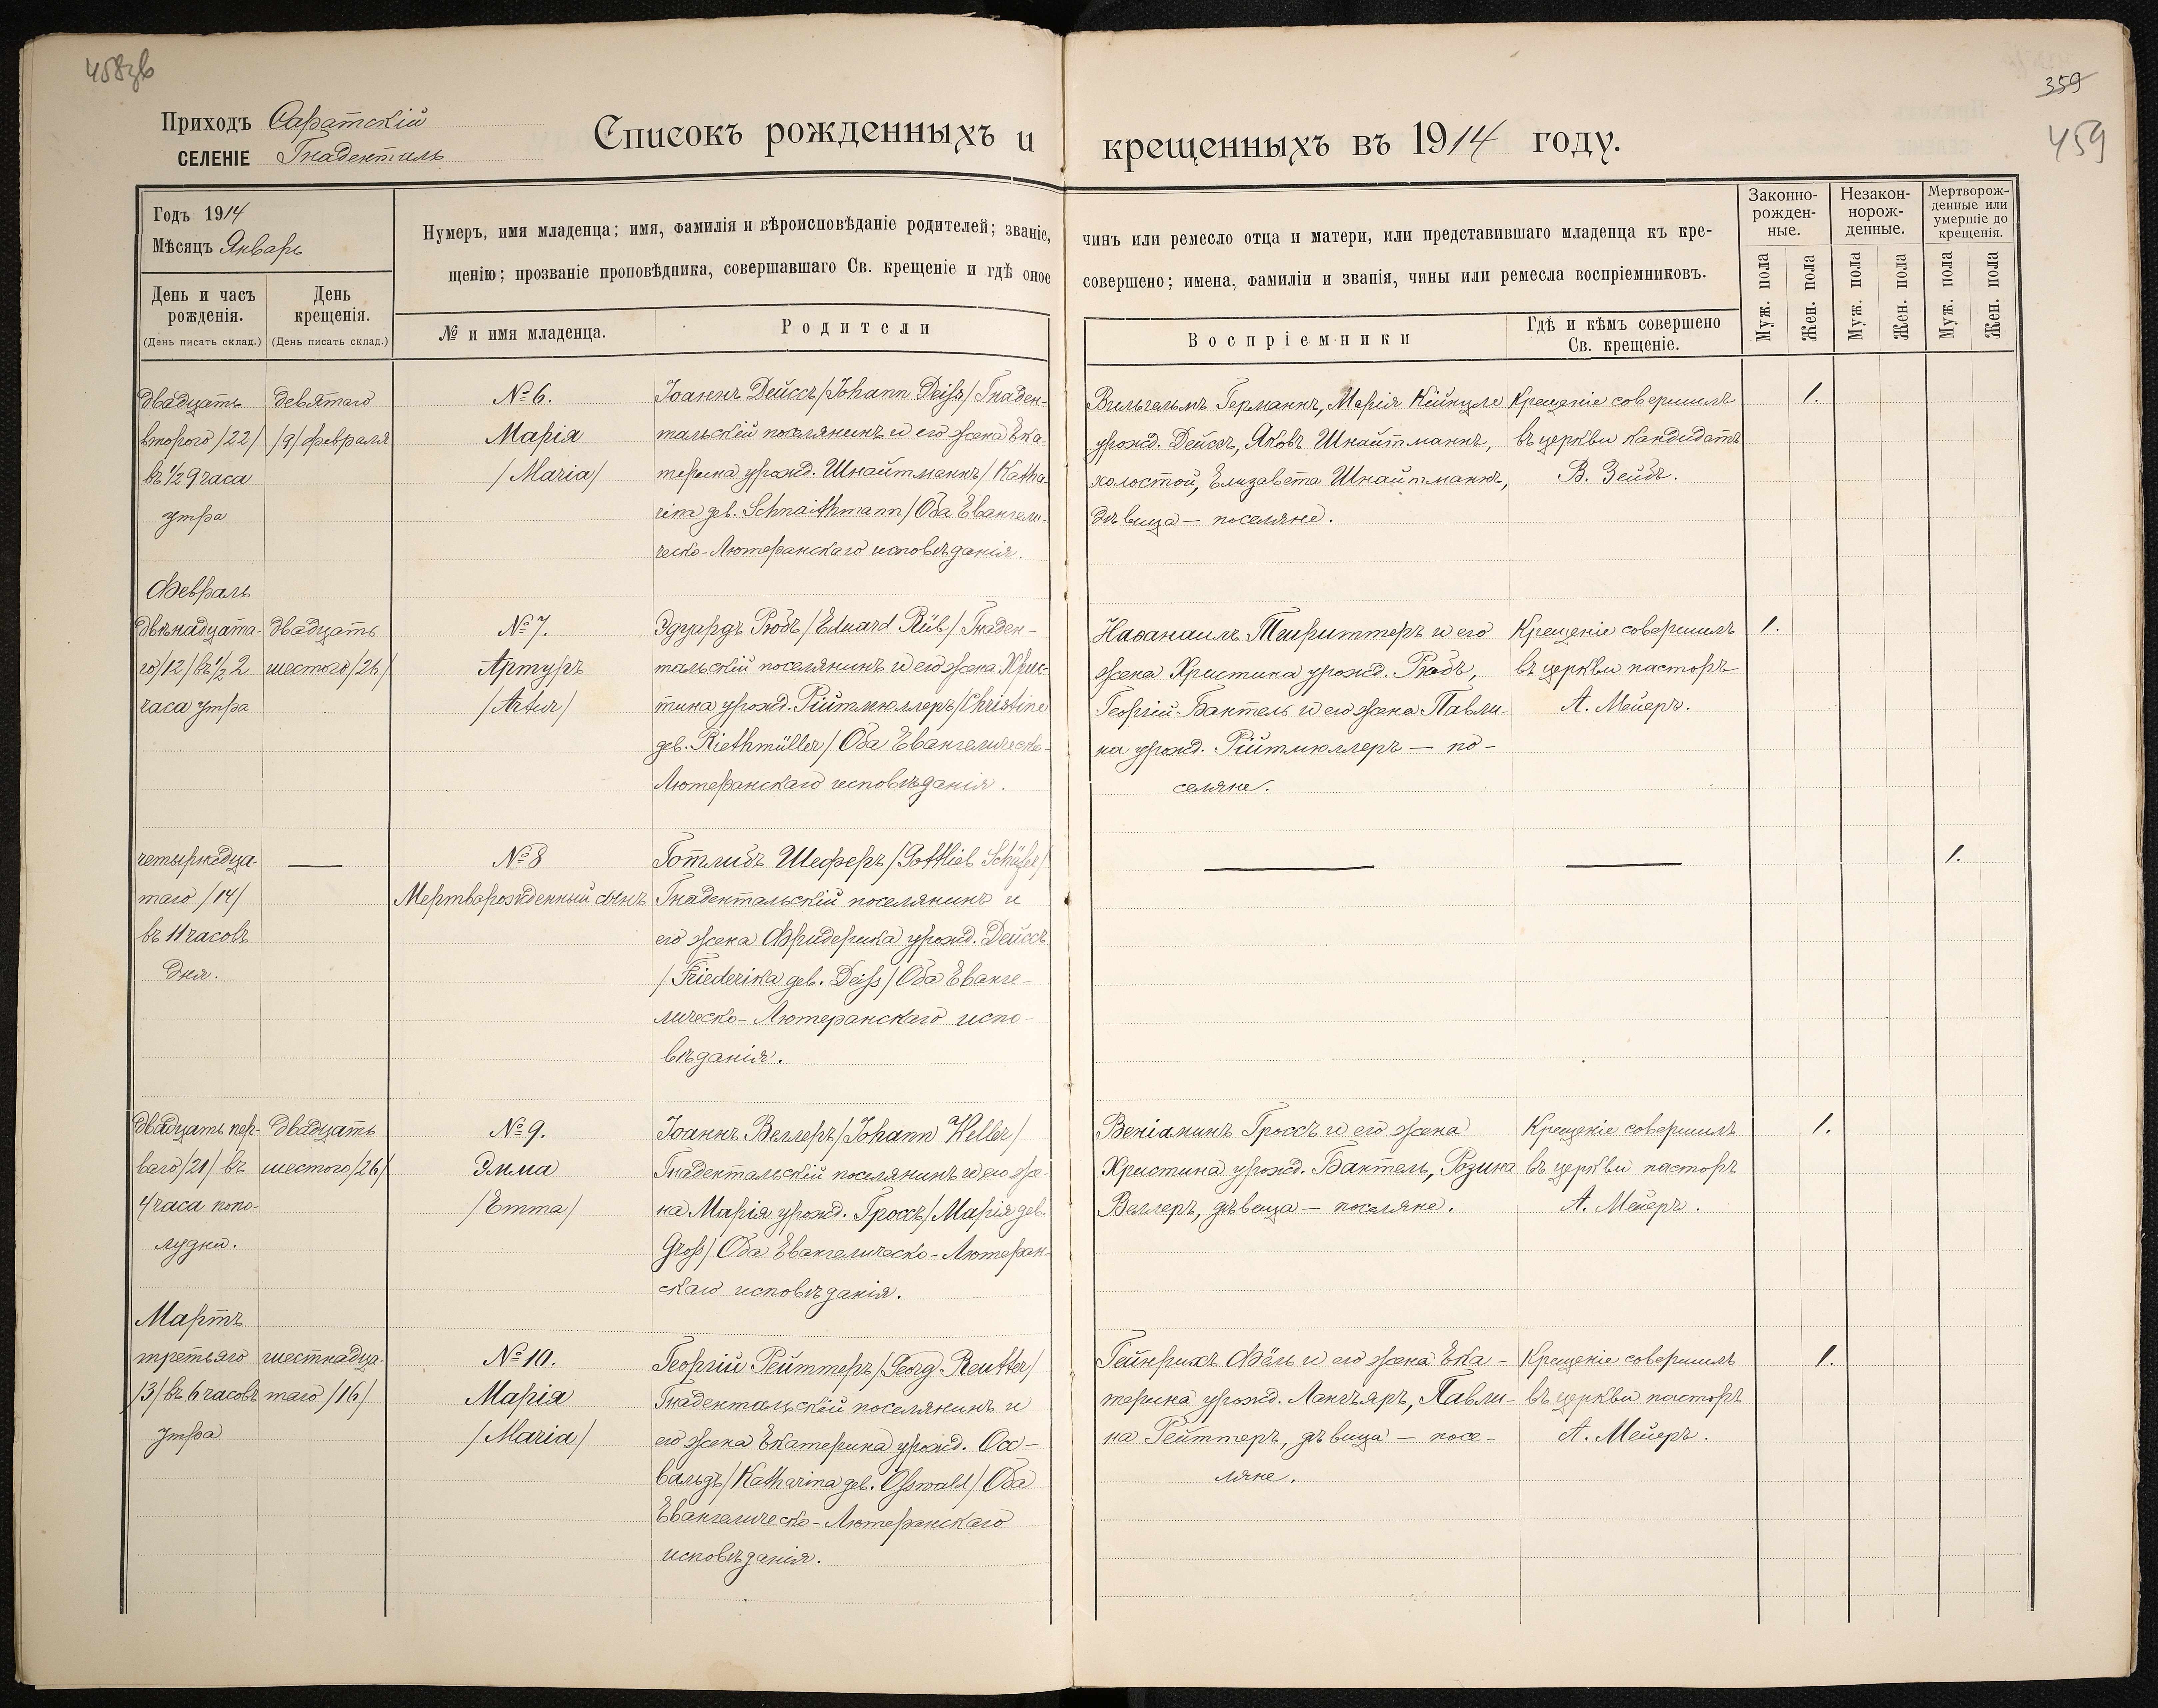 458зв
359
459
Приходъ Саратскій
селеніе Гнаденталь
Списокъ рожденныхъ и крещенныхъ въ 1914 году.
Годъ 1914
Мѣсяцъ Январь
День и часъ рожденія.
(День писать склад.)
День крещенія.
(День писать склад.)
Нумеръ, имя младенца; имя, фамилія и вѣроисповѣданіе родителей; званіе, чинъ или ремесло отца и матери, или представившаго младенца къ кре-
щенію; прозваніе проповѣдника, совершавшаго Св. крещеніе и гдѣ оное совершено; имена, фамиліи и званія, чины или ремесла воспріемниковъ.
№ и имя младенца.
Родители
Воспріемники
Гдѣ и кѣмъ совершено
Св. крещеніе.
Законно-
рожден-
ные.
Незакон-
норож-
денные.
Мертворож-
денные или
умершіе до
крещенія.
Муж. пола
Жен. пола
Муж. пола
Жен. пола
Муж. пола
Жен. пола
двадцать
второго /22/
въ 1/2 9 часа
утра
девятаго
/9/ февраля
№ 6.
Марія
/Maria/
Іоаннъ Дейссъ /Johann Deiß/ Гнаден-
тальскій поселянинъ и его жена Ека-
терина урожд. Шнайтманнъ /Katha-
rina geb. Schnaithmann/ Оба Евангели-
ческо-Лютеранскаго исповѣданія.
Вильгельмъ Германнъ, Марія Кёйнцле
урожд. Дейссъ, Яковъ Шнайтманнъ,
холостой, Елизавета Шнайтманнъ,
дѣвица — поселяне.
Крещеніе совершилъ
въ церкви кандидатъ
В. Зейбъ.
1.
Февраль
двѣнадцата-
го /12/ въ 1/2 2
часа утра
двадцать
шестого /26/
№ 7.
Артуръ
/Artur/
Эдуардъ Рюбъ /Eduard Rüb/ Гнаден-
тальскій поселянинъ и его жена Хрис-
тина урожд. Рійтмюллеръ /Christine
geb. Riethmüller/ Оба Евангелическо-
Лютеранскаго исповѣданія.
Наѳанаилъ Тшриттеръ и его
жена Христина урожд. Рюбъ,
Георгій Бактель и его жена Павли-
на урожд. Рійтмюллеръ — по-
селяне.
Крещеніе совершилъ
въ церкви пасторъ
А. Мейеръ.
1.
четырнадца-
таго /14/
въ 11 часовъ
дня.
—
№ 8
Мертворожденный сынъ
Готлибъ Шеферъ /Gottlieb Schäfer/
Гнадентальскій поселянинъ и
его жена Фридерика урожд. Дейссъ
/Friederika geb. Deiß/ Оба Еванге-
лическо-Лютеранскаго испо-
вѣданія.
—
—
1.
двадцать пер-
ваго /21/ въ
4 часа попо-
лудни.
двадцать
шестого /26/
№ 9.
Эмма
/Emma/
Іоаннъ Веллеръ /Johann Weller/
Гнадентальскій поселянинъ и его же-
на Марія урожд. Гроссъ /Марія geb.
Groß/ Оба Евангелическо-Лютеран-
скаго исповѣданія.
Веніаминъ Гроссъ и его жена
Христина урожд. Бактель, Розина
Веллеръ, дѣвица — поселяне.
Крещеніе совершилъ
въ церкви пасторъ
А. Мейеръ.
1.
Мартъ
третьяго
/3/ въ 6 часовъ
утра
шестнадца-
таго /16/
№ 10.
Марія
/Maria/
Георгій Рейттеръ /Georg Reutter/
Гнадентальскій поселянинъ и
его жена Екатерина урожд. Осс-
вальдъ /Katharina geb. Osswald/ Оба
Евангелическо-Лютеранскаго
исповѣданія.
Гейнрихъ Фёль и его жена Ека-
терина урожд. Лангъяръ, Павли-
на Рейттеръ, дѣвица — посе-
ляне.
Крещеніе совершилъ
въ церкви пасторъ
А. Мейеръ.
1.